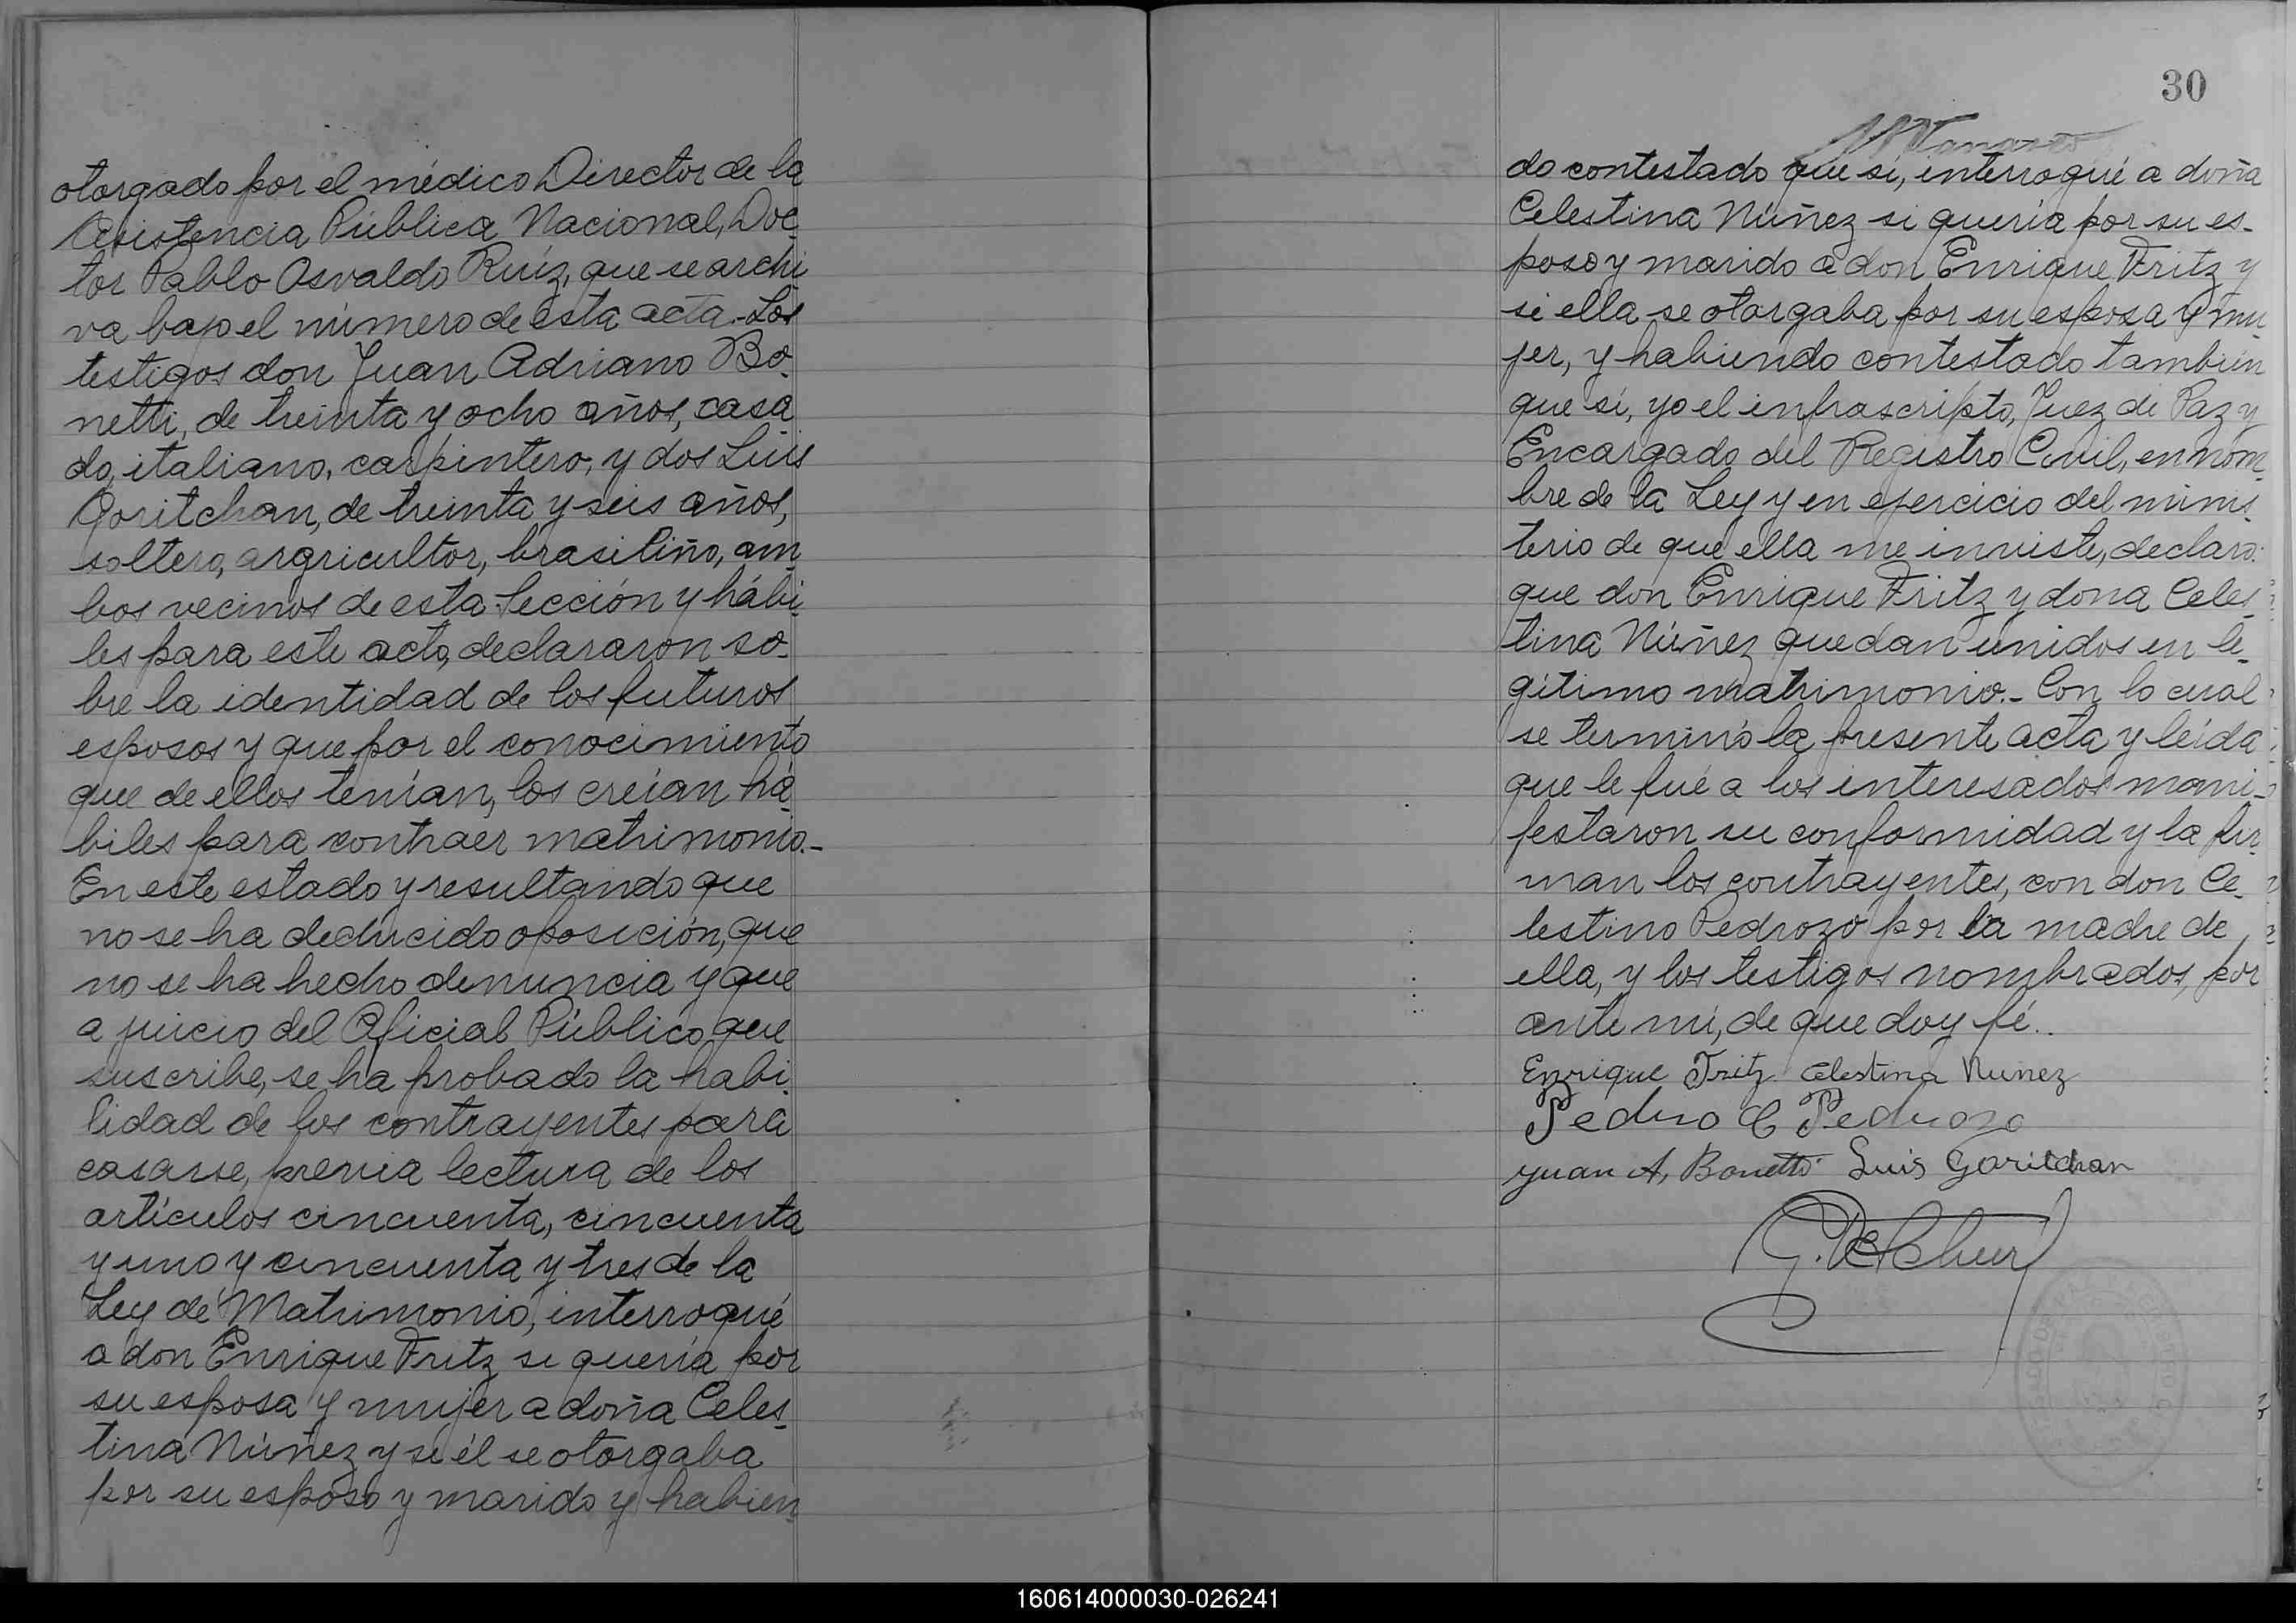 otorgado por el médico Director de la
Asistencia Pública Nacional, Doc-
tor Pablo Osvaldo Ruíz, que se archi-
va bajo el número de ésta acta.- Los
testigos don Juan Adriano Bo-
netti, de treinta y ocho años, casa-
do, italiano, carpintero, y dos Luis
Goritchan, de treinta y seis años,
soltero, argricultor, brasiliño, am-
bos vecinos de esta Sección y hábi-
les para este acto, declararon so-
bre la identidad de los futuros
esposos y que por el conocimiento
que de ellos tenían, los creían há-
biles para contraer matrimonio.-
En este estado y resultando que
no se ha deducido oposición, que
no se ha hecho denuncia y que
a juicio del Oficial Público que
suscribe, se ha probado la habi-
lidad de los contrayentes para
casarse, previa lectura de los
artículos cincuenta, cincuenta
y uno y cincuenta y tres de la
Ley de Matrimonio, interrogué
a don Enrique Fritz si quería por
su esposa y mujer a doña Celes-
tina Núñez y si él se otorgaba
por su esposo y marido y habien-
30
do contestado que sí, interrogué a doña
Celestina Núñez si quería por su es-
poso y marido a don Enrique Fritz y
si ella se otorgaba por su esposa y mu-
jer, y habiendo contestado también
que sí, yo el infrascripto, Juez de Paz y
Encargado del Registro Civil, en nom-
bre de la Ley y en ejercicio del minis-
terio de que ella me inviste, declaro:
que don Enrique Fritz y dona Celes-
tina Núñez quedan unidos en le-
gítimo matrimonio.- Con lo cual
se terminó la presente acta y leída
que le fué a los interesados mani-
festaron su conformidad y la fir-
man los contrayentes, con don Ce-
lestino Pedrozo por la madre de
ella, y los testigos nombrados, por
ante mí, de que doy fé..
Enrique Fritz Celestina Nunez
Pedro C Pedrozo
Juan A, Bonetti Luis Goritchan
160614000030-026241